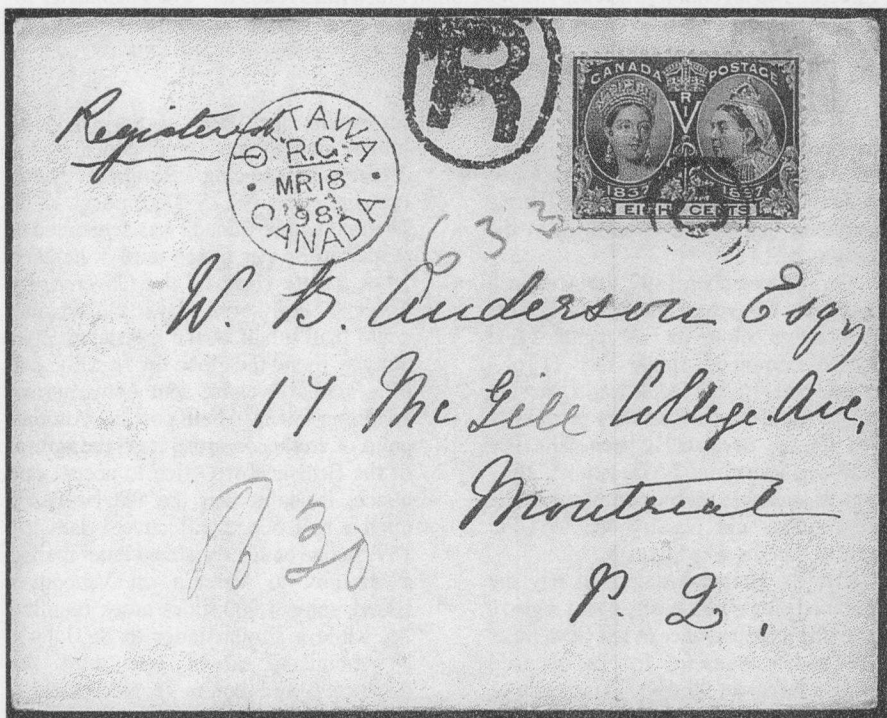 R
Registered
OTTAWA
R.C.
MR 18
98
CANADA
CANADA POSTAGE
V R
1837 1897
EIGHT CENTS
633
W. B. Anderson Esqy
17 McGill College Ave,
Montreal
P. Q.
R 30